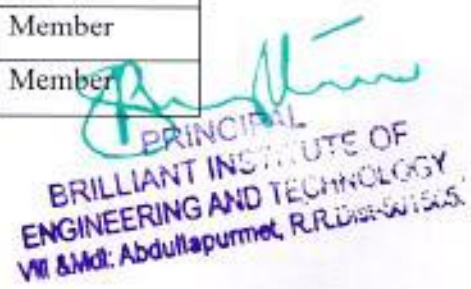 Member
Member
PRINCIPAL
BRILLIANT INSTITUTE OF
ENGINEERING AND TECHNOLOGY
Vill &Mdl: Abdullapurmet, R.R.Dist-501505.